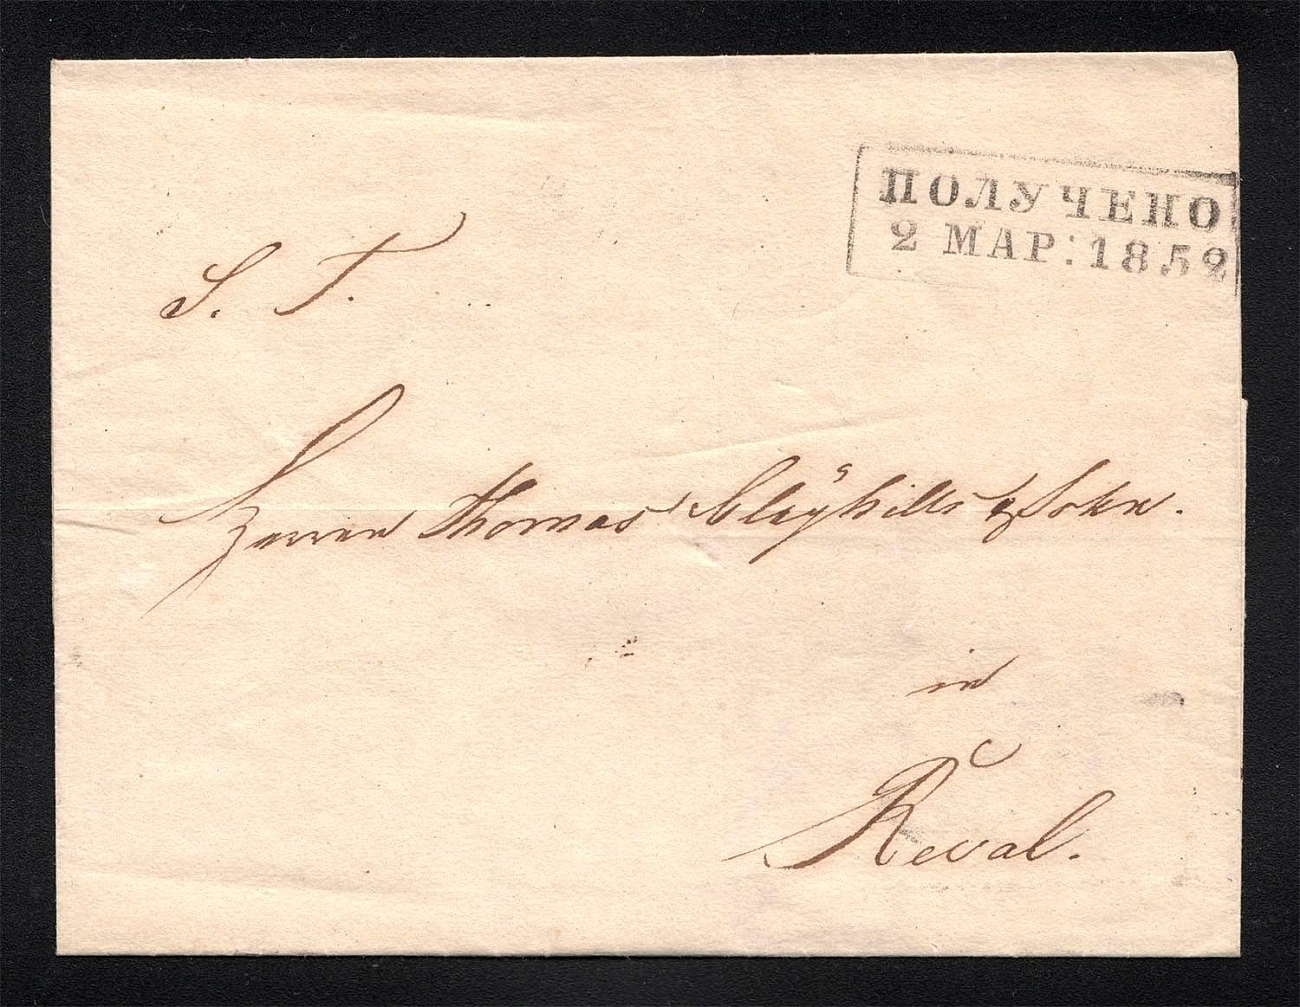 ПОЛУЧЕНО
2 МАР: 1852
S. T.
Herren Thomas Clayhills & Sohn.
in
Reval.